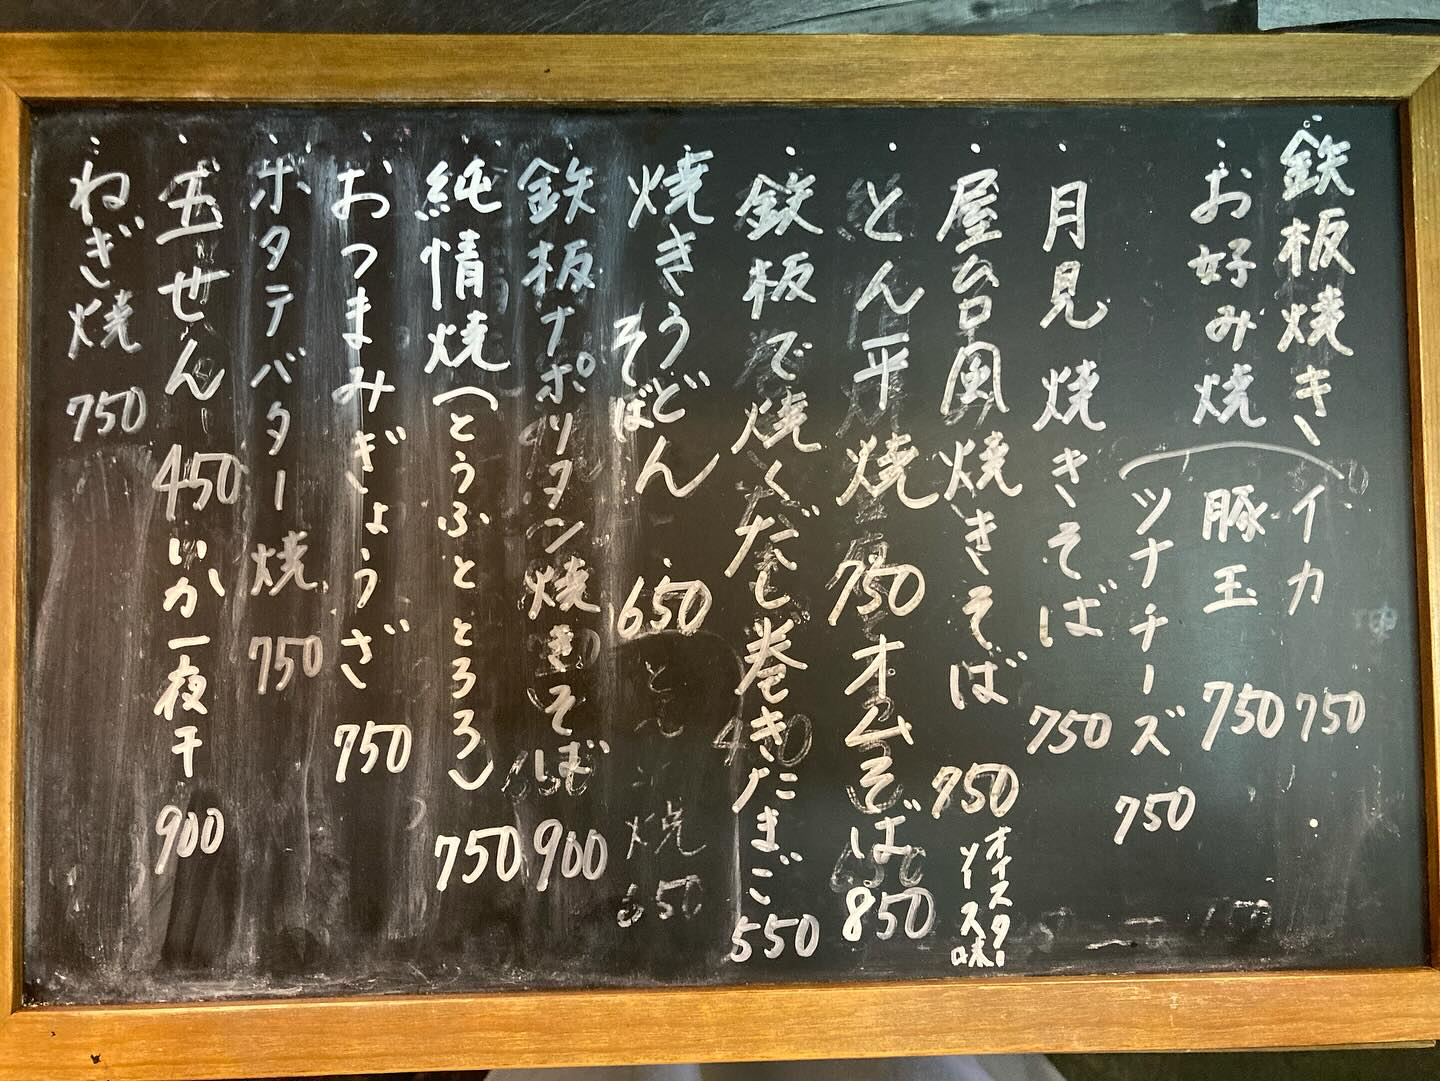 鉄板焼き
・お好み焼
イカ 750
豚玉 750
ツナチーズ 750
・月見焼きそば 750
・屋台風焼きそば 750
オイスターソース味
・とん平焼 750
オムそば 850
・鉄板で焼くだし巻きたまご 550
・焼きうどん
そば
・650
・鉄板ナポリタン焼きそば 900
・純情焼(とうふととろろ) 750
・おつまみぎょうざ 750
・ホタテバター焼 750
・玉せん 450
・いか一夜干 900
・ねぎ焼 750